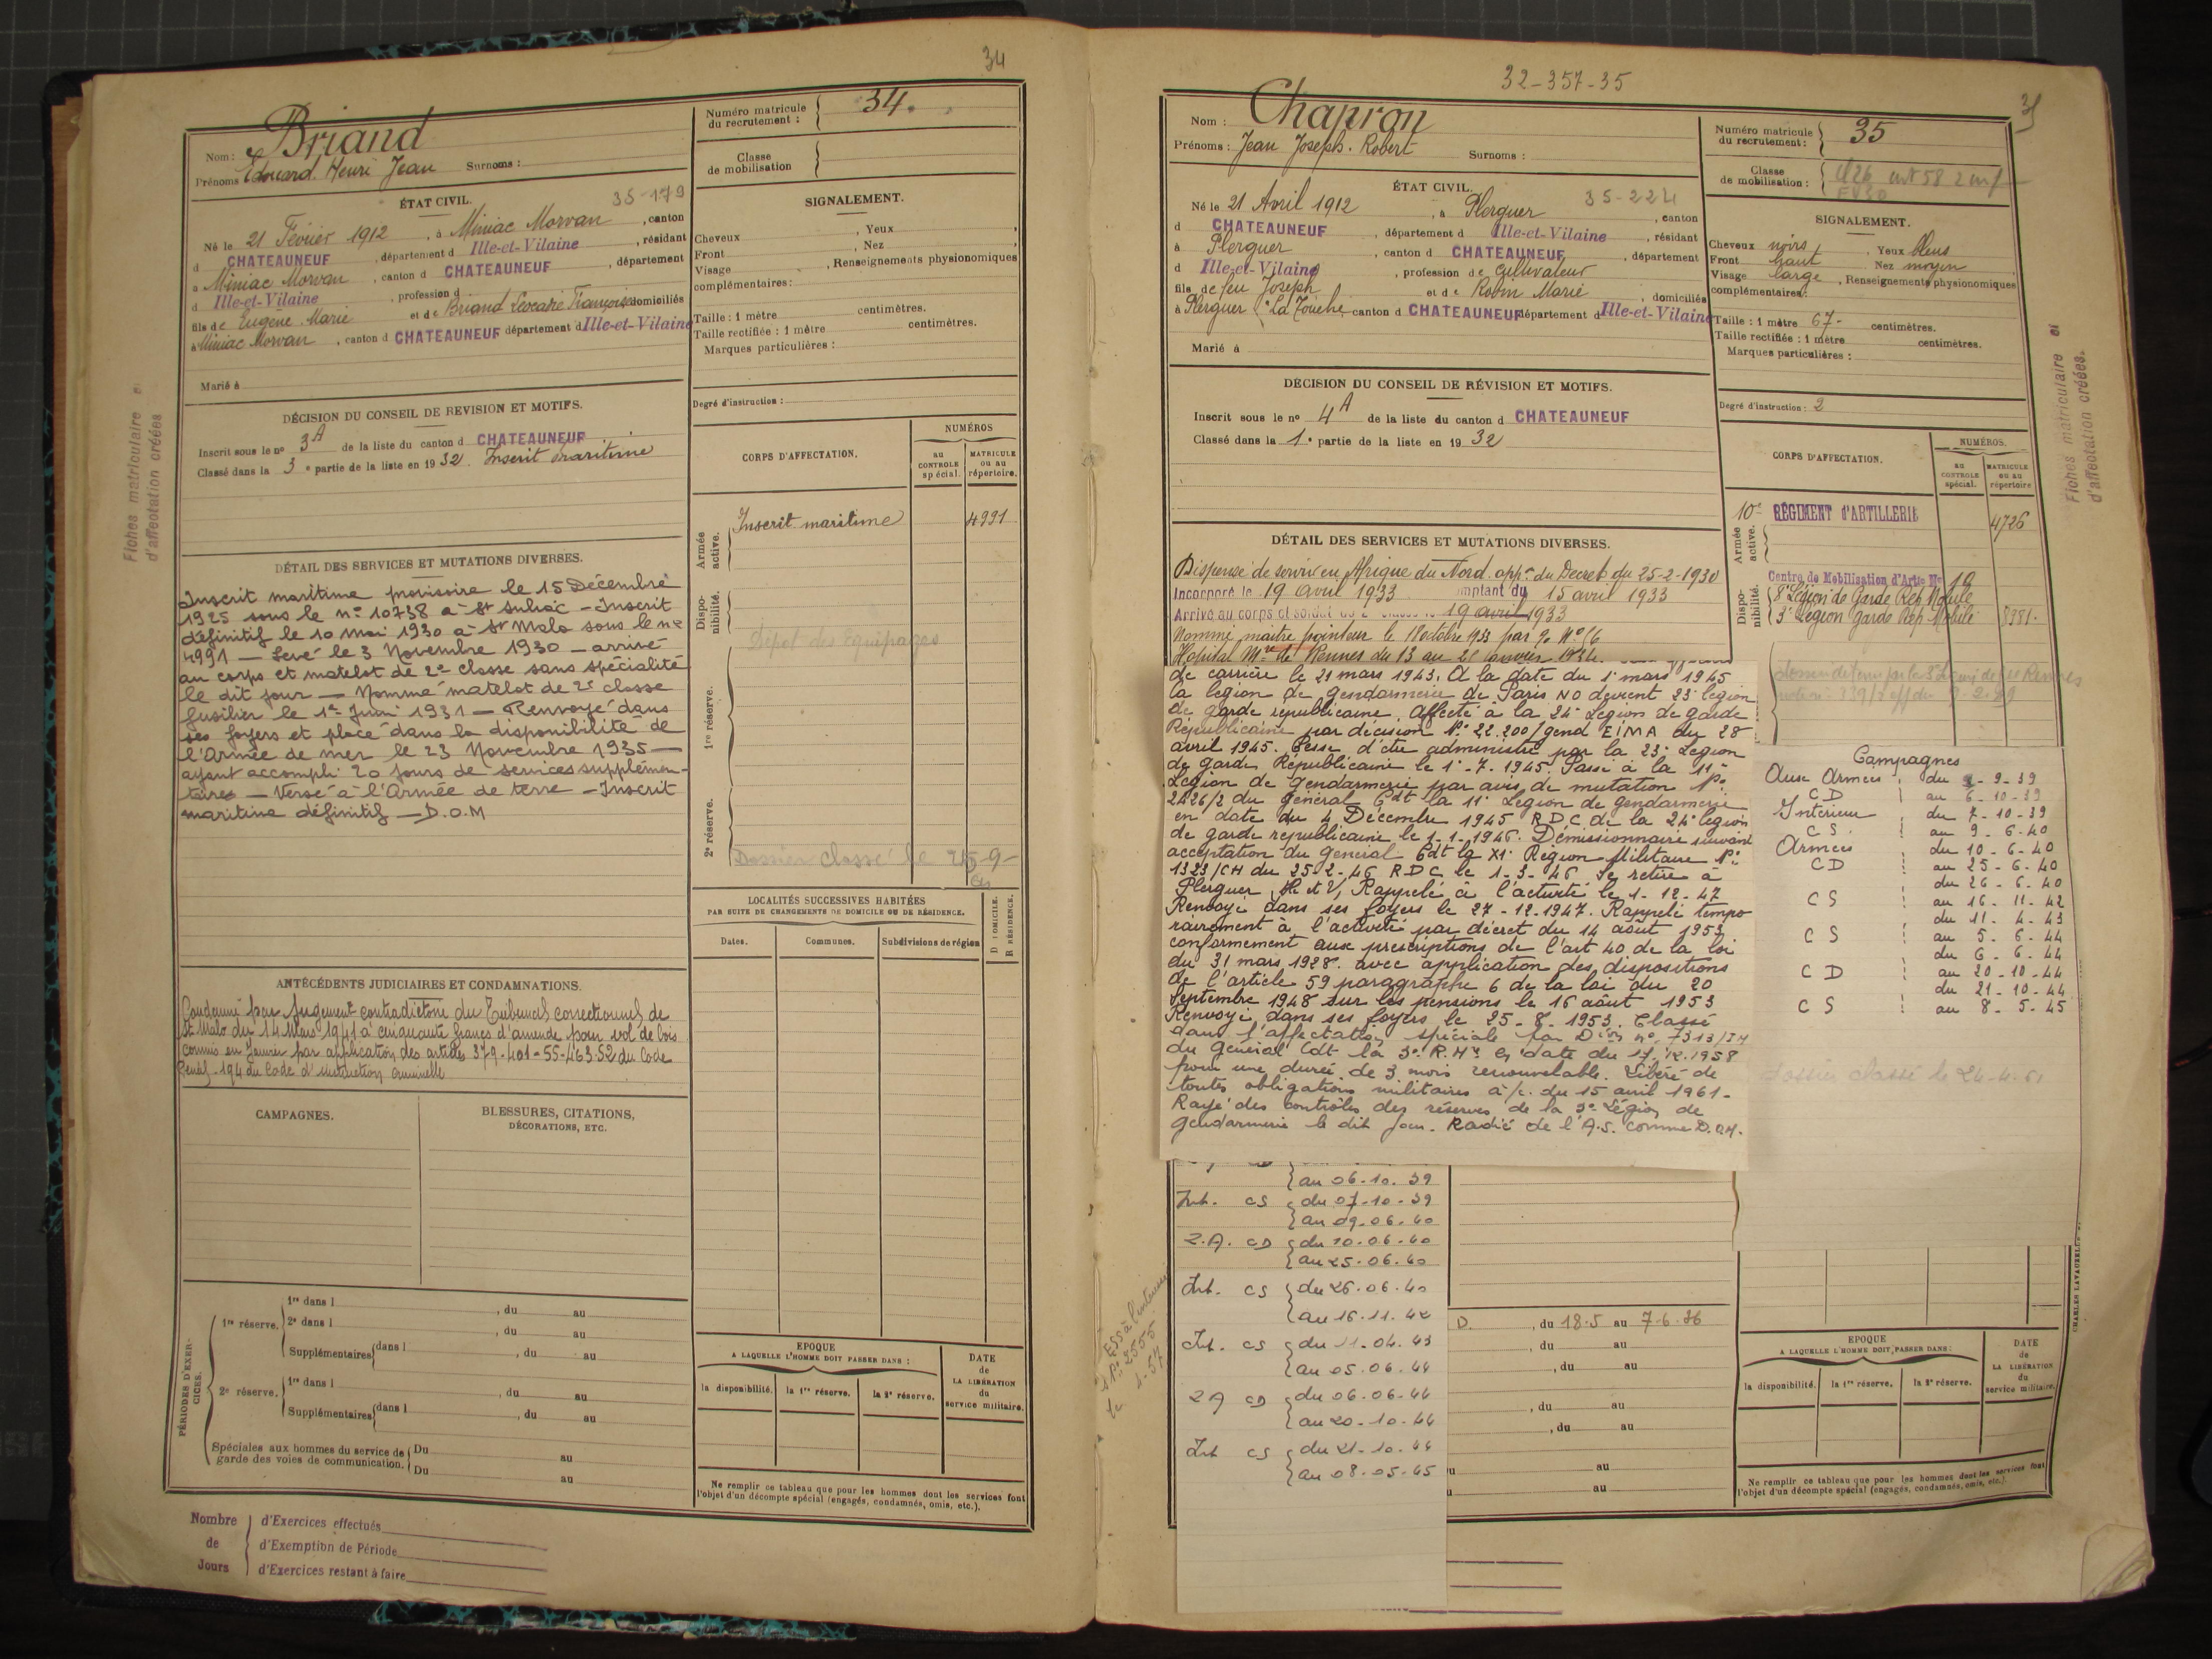 34
Briand
Nom :
Prénoms Edouard Henri Jean Surnoms :
Numéro matricule du recrutement : 34.
Classe de mobilisation
ÉTAT CIVIL. 35-179
Né le 21 Février 1912, à Miniac Morvan, canton
d CHATEAUNEUF, département d Ille-et-Vilaine, résidant
à Miniac Morvan, canton d CHATEAUNEUF, département
d Ille-et-Vilaine, profession d
fils de Eugène Marie et de Briand Françoise domiciliés
à Miniac Morvan, canton d CHATEAUNEUF département d Ille-et-Vilaine
Marié à
SIGNALEMENT.
Cheveux , Yeux ,
Front , Nez ,
Visage , Renseignements physionomiques
complémentaires :
Taille : 1 mètre centimètres.
Taille rectifiée : 1 mètre centimètres.
Marques particulières :
Degré d'instruction :
DÉCISION DU CONSEIL DE REVISION ET MOTIFS.
Inscrit sous le no 3A de la liste du canton d CHATEAUNEUF
Classé dans la 3e partie de la liste en 1932. Inscrit maritime
CORPS D'AFFECTATION.
NUMÉROS
au CONTROLE spécial.
MATRICULE ou au répertoire.
Armée active.
Inscrit maritime 4991
Disponibilité.
Dépôt des Equipages
1re réserve.
2e réserve.
Dossier classé le
DÉTAIL DES SERVICES ET MUTATIONS DIVERSES.
Inscrit maritime provisoire le 15 Décembre
1925 sous le no 10738 à St Suliac - Inscrit
définitif le 10 mai 1930 à St Malo sous le no
4991 - Levé le 3 Novembre 1930 - arrivé
au corps et matelot de 2e classe sans spécialité
le dit jour - Nommé matelot de 2e classe
fusilier le 1er Juin 1931 - Renvoyé dans
ses foyers et placé dans la disponibilité de
l'Armée de mer le 23 Novembre 1935 -
ayant accompli 20 jours de services supplémen-
taires - Versé à l'Armée de terre - Inscrit
maritime définitif - D.O.M
ANTÉCÉDENTS JUDICIAIRES ET CONDAMNATIONS.
Condamné par jugement contradictoire du Tribunal correctionnel de
St Malo du 14 Mars 1941 à cinquante francs d'amende pour vol de bois
commis en Janvier par application des articles 379-401-55-463.52 du Code
Pénal - 194 du Code d'instruction criminelle
CAMPAGNES.
BLESSURES, CITATIONS, DÉCORATIONS, ETC.
LOCALITÉS SUCCESSIVES HABITÉES
PAR SUITE DE CHANGEMENTS DE DOMICILE OU DE RÉSIDENCE.
Dates. Communes. Subdivisions de région
D DOMICILE. R RÉSIDENCE.
PÉRIODES D'EXERCICES.
1re réserve. 1re dans l , du au
2e dans l , du au
Supplémentaires dans l , du au
2e réserve. 1re dans l , du au
Supplémentaires dans l , du au
Spéciales aux hommes du service de garde des voies de communication. Du au
Du au
EPOQUE
A LAQUELLE L'HOMME DOIT PASSER DANS :
la disponibilité. la 1re réserve. la 2e réserve.
DATE de LA LIBÉRATION du service militaire.
Ne remplir ce tableau que pour les hommes dont les services font
l'objet d'un décompte spécial (engagés, condamnés, omis, etc.).
Nombre de Jours
d'Exercices effectués
d'Exemption de Période
d'Exercices restant à faire
Fiches matriculaire et
d'affectation créées
32-357-35
35
Nom : Chapron
Prénoms : Jean Joseph. Robert Surnoms :
Numéro matricule du recrutement : 35
Classe de mobilisation :
ÉTAT CIVIL. 35-224
Né le 21 Avril 1912, à Plerguer, canton
d CHATEAUNEUF, département d Ille-et-Vilaine, résidant
à Plerguer, canton d CHATEAUNEUF, département
d Ille-et-Vilaine, profession de cultivateur
fils de feu Joseph et de Robin Marie, domiciliés
à Plerguer "La Touche" canton d CHATEAUNEUF département d Ille-et-Vilaine
Marié à
SIGNALEMENT.
Cheveux noirs, Yeux bleus
Front haut Nez moyen
Visage large, Renseignements physionomiques
complémentaires :
Taille : 1 mètre 67 centimètres.
Taille rectifiée : 1 mètre centimètres.
Marques particulières :
Degré d'instruction : 2
DÉCISION DU CONSEIL DE RÉVISION ET MOTIFS.
Inscrit sous le no 4A de la liste du canton d CHATEAUNEUF
Classé dans la 1e partie de la liste en 1932
CORPS D'AFFECTATION.
NUMÉROS.
AU CONTROLE spécial.
MATRICULE OU AU répertoire
Armée active.
10e RÉGIMENT d'ARTILLERIE 4726
Disponibilité.
Centre de Mobilisation d'Artie No 10
8e Légion de Garde Rép Mobile
3e Légion Garde Rép Mobile 8381.
DÉTAIL DES SERVICES ET MUTATIONS DIVERSES.
Dispensé de servir en Afrique du Nord. appn du Decret du 25-2-1930
Incorporé le 19 avril 1933 comptant du 15 avril 1933
Arrivé au corps et soldat de 2e classe le 19 avril 1933
Nommé maitre pointeur le 18 octobre 1933 par
Hopital Mre de Rennes du 13 au
de carrière le 21 mars 1943. A la date du 1er mars 1945
la légion de gendarmerie de Paris NO devient 23e légion
de garde républicaine. Affecté à la 24e Légion de garde
Républicaine par décision No 22.200/gend E/MA du 28
avril 1945. Cesse d'être administré par la 23e Légion
de garde Républicaine le 1-7-1945. Passé à la 11e
Légion de gendarmerie par avis de mutation No
2426/2 du général Cdt la 11e Légion de gendarmerie
en date du 4 Décembre 1945 R.D.C. de la 24e légion
de garde républicaine le 1-1-1946. Démissionnaire suivant
acceptation du général Cdt la XIe Région Militaire No
1323/CH du 25-2-46 RDC le 1-3-46 Se retire à
Plerguer, I et V, Rappelé à l'activité le 1-12-47
Renvoyé dans ses foyers le 27-12-1947. Rappelé tempo
rairement à l'activité par décret du 14 août 1953
conformément aux prescriptions de l'art 40 de la loi
du 31 mars 1928. avec application des dispositions
de l'article 59 paragraphe 6 de la loi du 20
Septembre 1948 sur les pensions le 16 août 1953
Renvoyé dans ses foyers le 25-8-1953. Classé
dans l'affectation spéciale par Don no 7313/IM
du Général Cdt la 3e R.Mre en date du 17.12.1958
pour une durée de 3 mois renouvelable. Libéré de
toutes obligations militaires à/c. du 15 avril 1961-
Rayé des contrôles des réserves de la 3e Légion de
gendarmerie le dit jour. Radié de l'A.S. comme D.O.M.
Campagnes
Aux Armées du 2-9-39
CD au 6-10-39
Intérieur du 7-10-39
CS. au 9-6-40
Armées du 10-6-40
CD au 25-6-40
du 26-6-40
CS au 16-11-42
du 11-4-43
CS au 5-6-44
du 6-6-44
CD au 20-10-44
du 21-10-44
CS au 8-5-45
Dossier classé le 24-4-61
au 06-10-39
Int. CS du 07-10-39
au 09-06-40
Z.A. CD du 10-06-40
au 25-06-40
Int. CS du 26-06-40
au 16-11-42
Int. CS du 11-04-43
au 05-06-44
Z A CD du 06-06-44
au 20-10-44
Int CS du 21-10-44
au 08-05-45
D. , du 18-5 au 7-6-36
, du au
, du au
, du au
, du au
au
au
EPOQUE
A LAQUELLE L'HOMME DOIT PASSER DANS :
la disponibilité. la 1re réserve. la 2e réserve.
DATE de LA LIBÉRATION du service militaire.
Ne remplir ce tableau que pour les hommes dont les services font
l'objet d'un décompte spécial (engagés, condamnés, omis, etc.).
CHARLES LAVAUZELLE
Fiches matriculaire et
d'affectation créées.